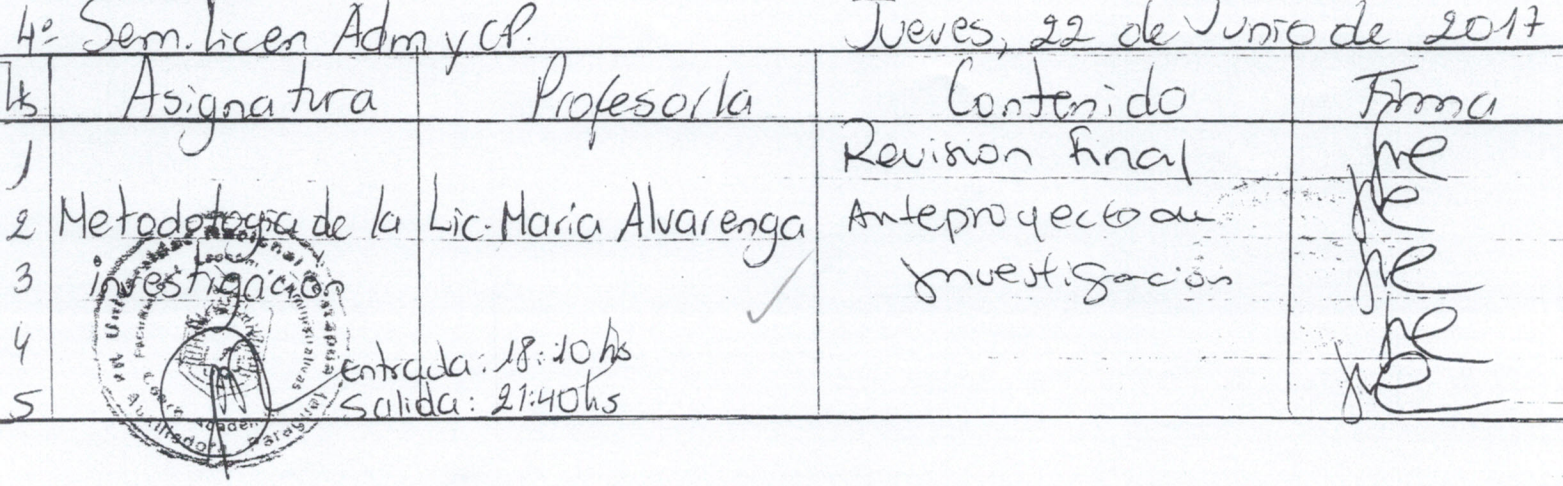 4º Sem. Licen Adm y CP. Jueves, 22 de Junio de 2017
Hs Asignatura Profesor/a Contenido Firma
1 Revision Final
2 Metodologia de la Lic. Maria Alvarenga Anteproyecto de
3 investigación investigación
4 entrada: 18:10 hs
5 Salida: 21:40 hs